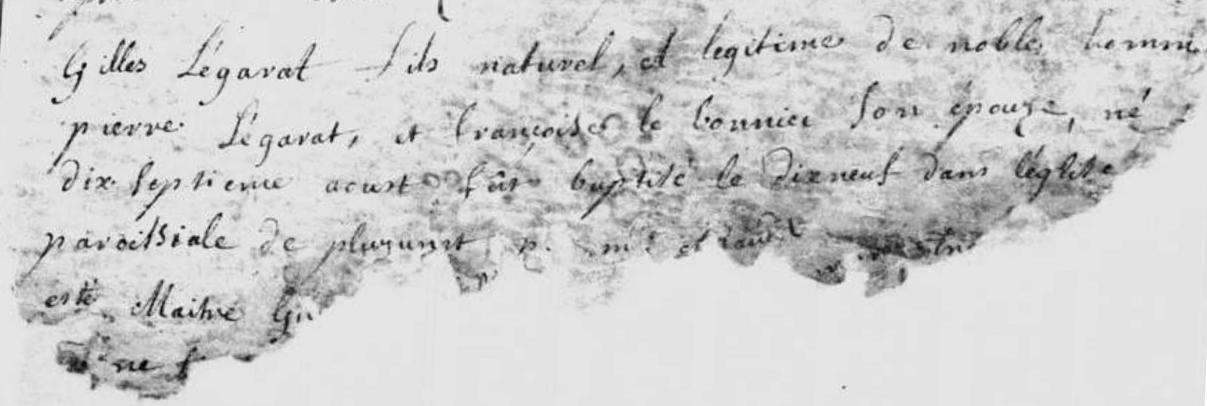 Gilles Légarat fils naturel, et legitime de noble homme
pierre Légarat, et françoise le bonnier son épouze, né
dix septieme aoust fût baptisé le dixneuf dans léglise
paroissiale de pluzunet p. mre et
esté Maitre
ne